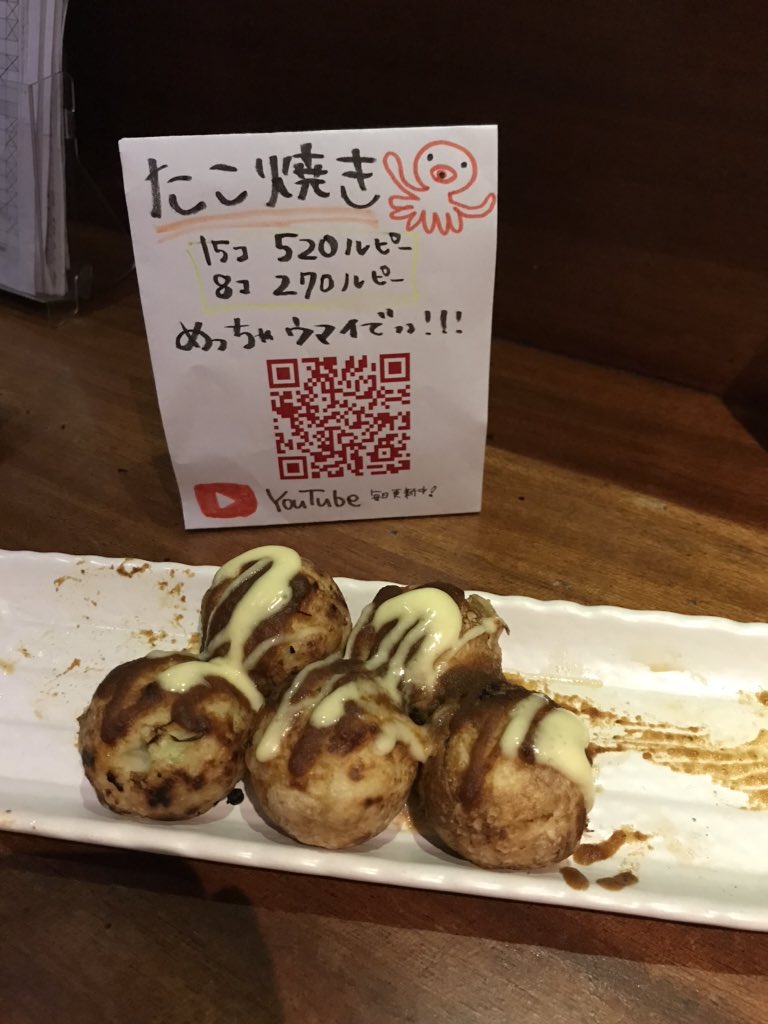 たこ焼き
15コ 520ルピー
8コ 270ルピー
めっちゃウマイでっ!!!
YouTube 毎日更新中!